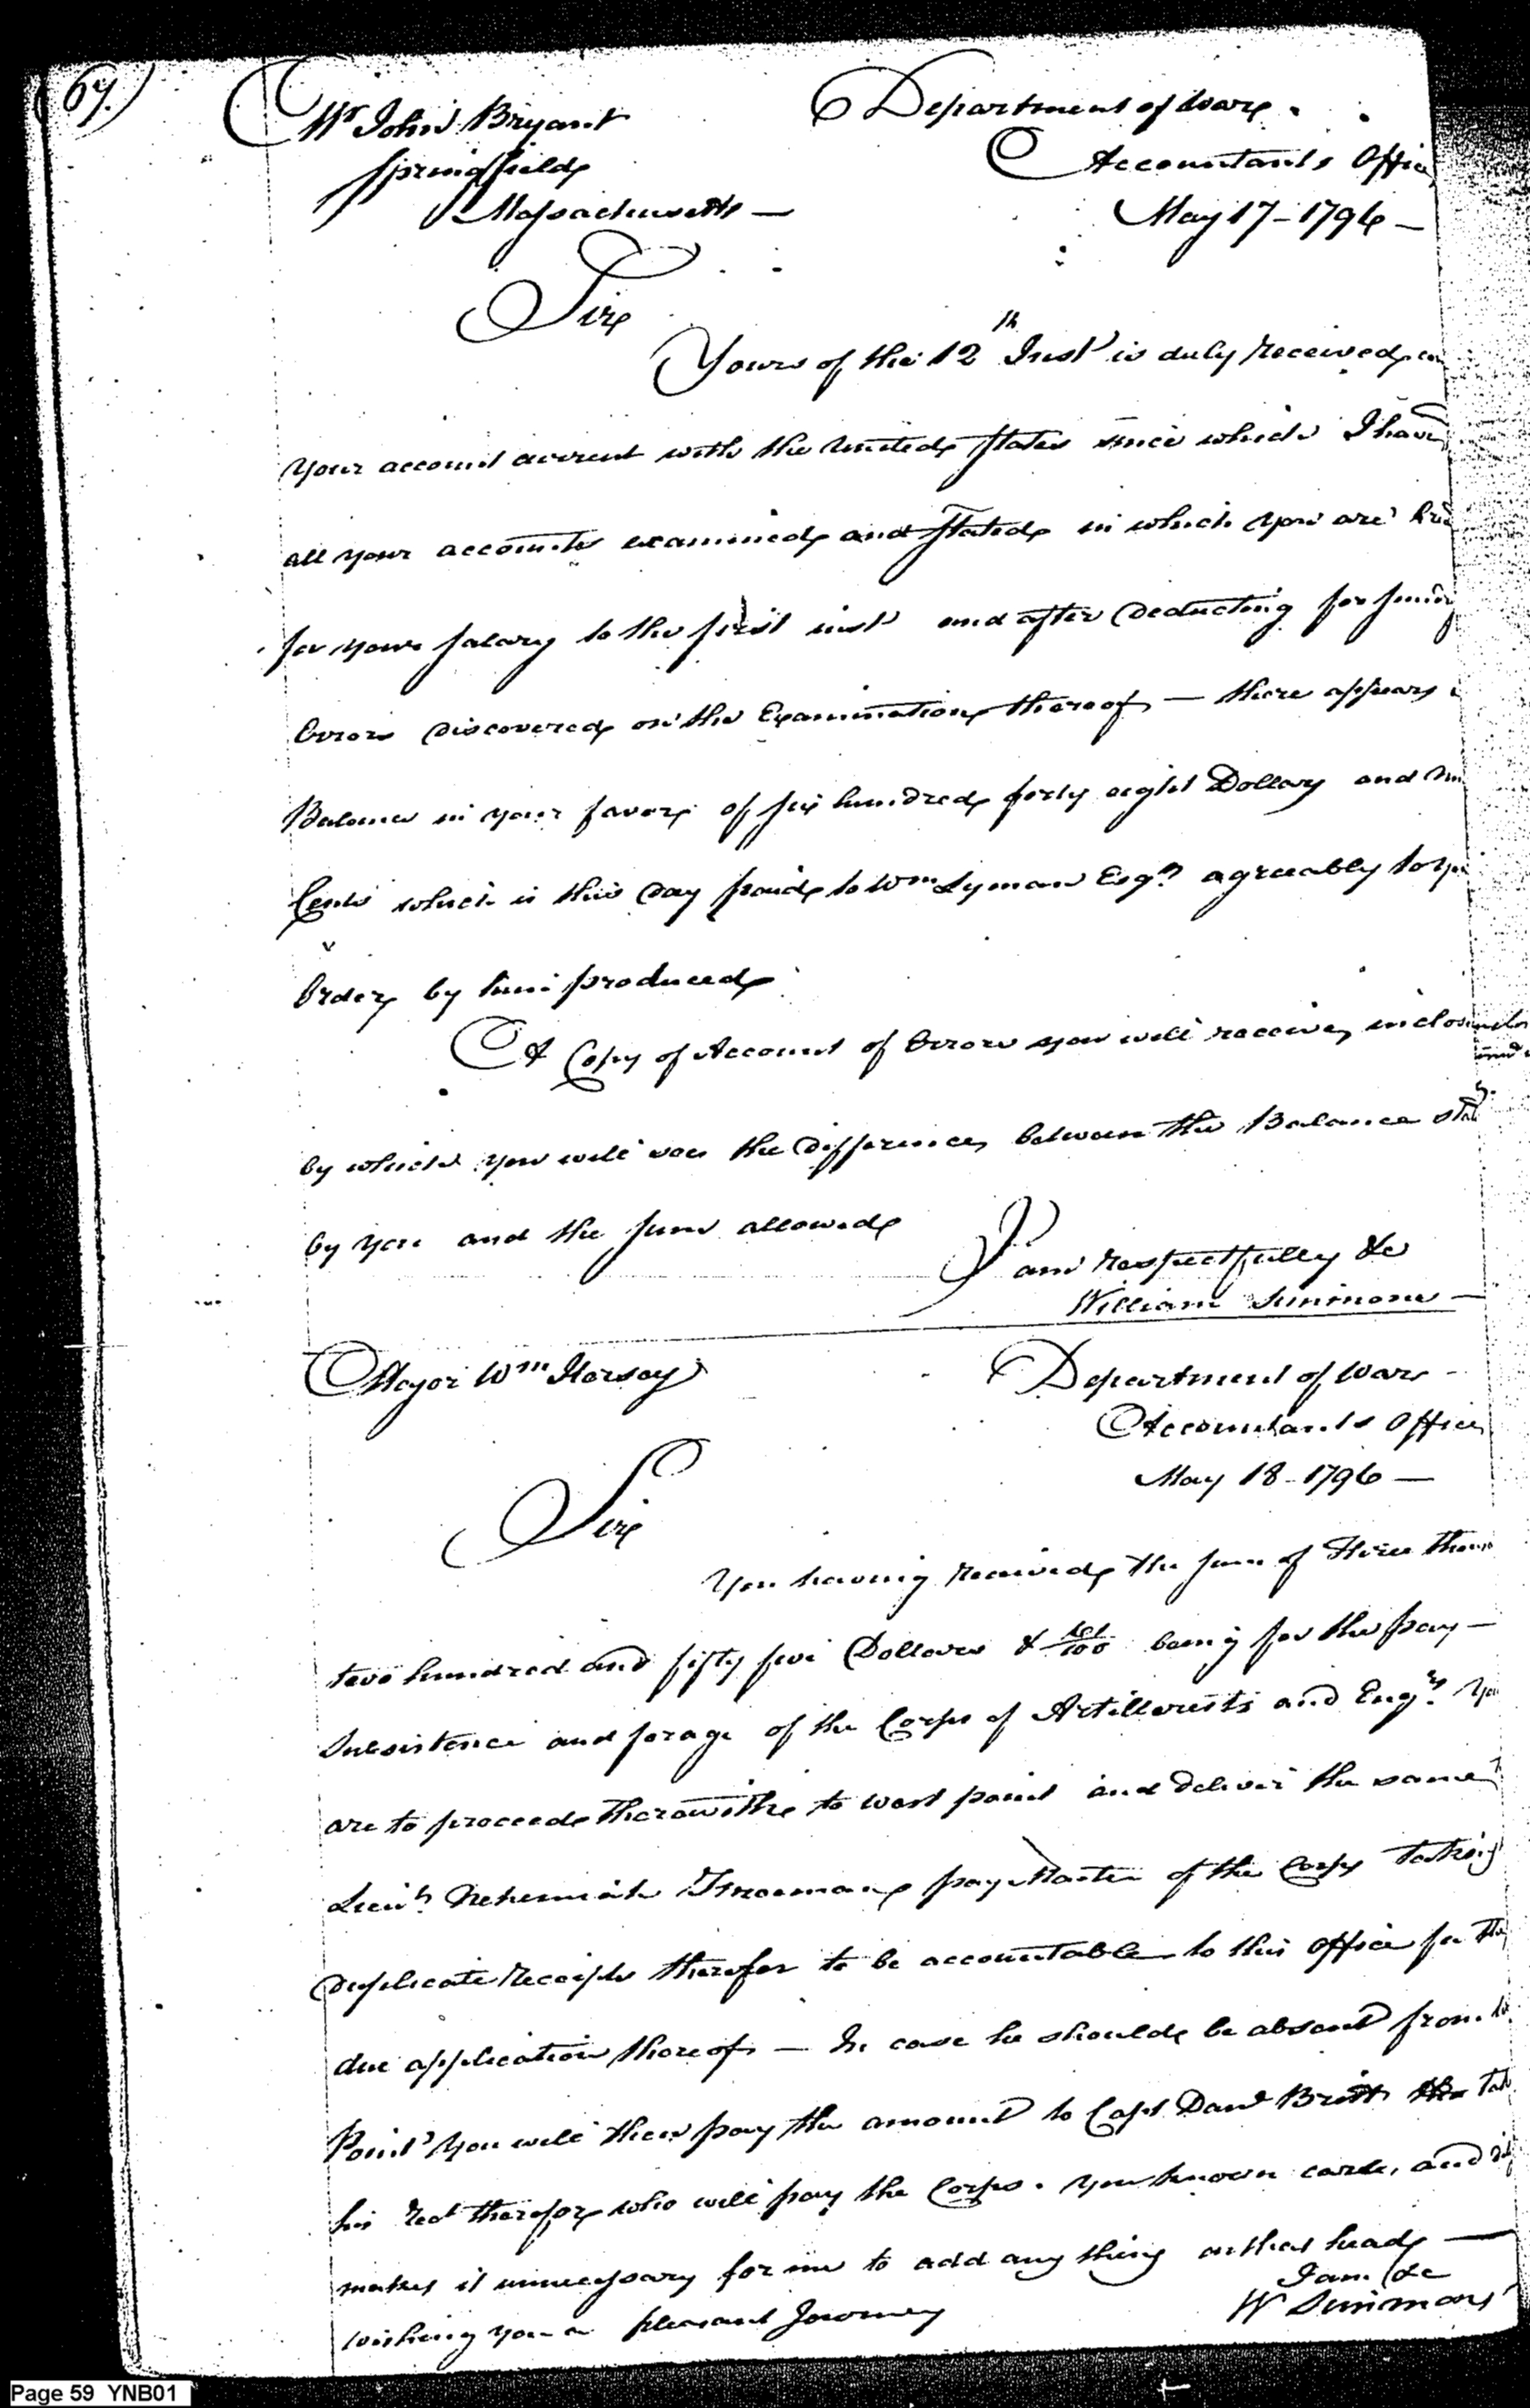 67.
Mr John Bryant
Springfield
Massachusetts —
Department of War
Accountants Office
May 17 - 1796 —
Sir
Yours of the 12th Inst is duly received
your account current with the United States since which I have
all your accounts examined and Stated in which you are
for your Salary to the first inst and after Deducting for
Errors Discovered on the Examination thereof — there appears
Balance in your favor of six hundred forty eight Dollars and
Cents which is this Day paid to Wm Lyman Esqr agreeably to
Order by him produced
A Copy of Account of Errors you will receive
by which you will see the Difference between the Balance
by you and the sum allowed
I am respectfully &c
William Simmons —
Major Wm
Department of War
Accountants Office
May 18 - 1796 —
Sir
You having received the sum of Three
two hundred and fifty five Dollars & /100 being for the pay —
Subsistence and forage of the Corps of Artillerists and Engrs
are to proceed therewith to west point and deliver the same
Lieut Nehemiah Freeman pay Master of the Corps taking
Duplicate Receipts therefor to be accountable to this office for the
due application thereof — In case he should be absent from
Point you will then pay the amount to Capt Danl Britt
his Rect therefor who will pay the Corps. your known care, and
makes it unnecessary for me to add any thing on that head —
wishing you a pleasant Journey
I am &c
W Simmons
Page 59 YNB01